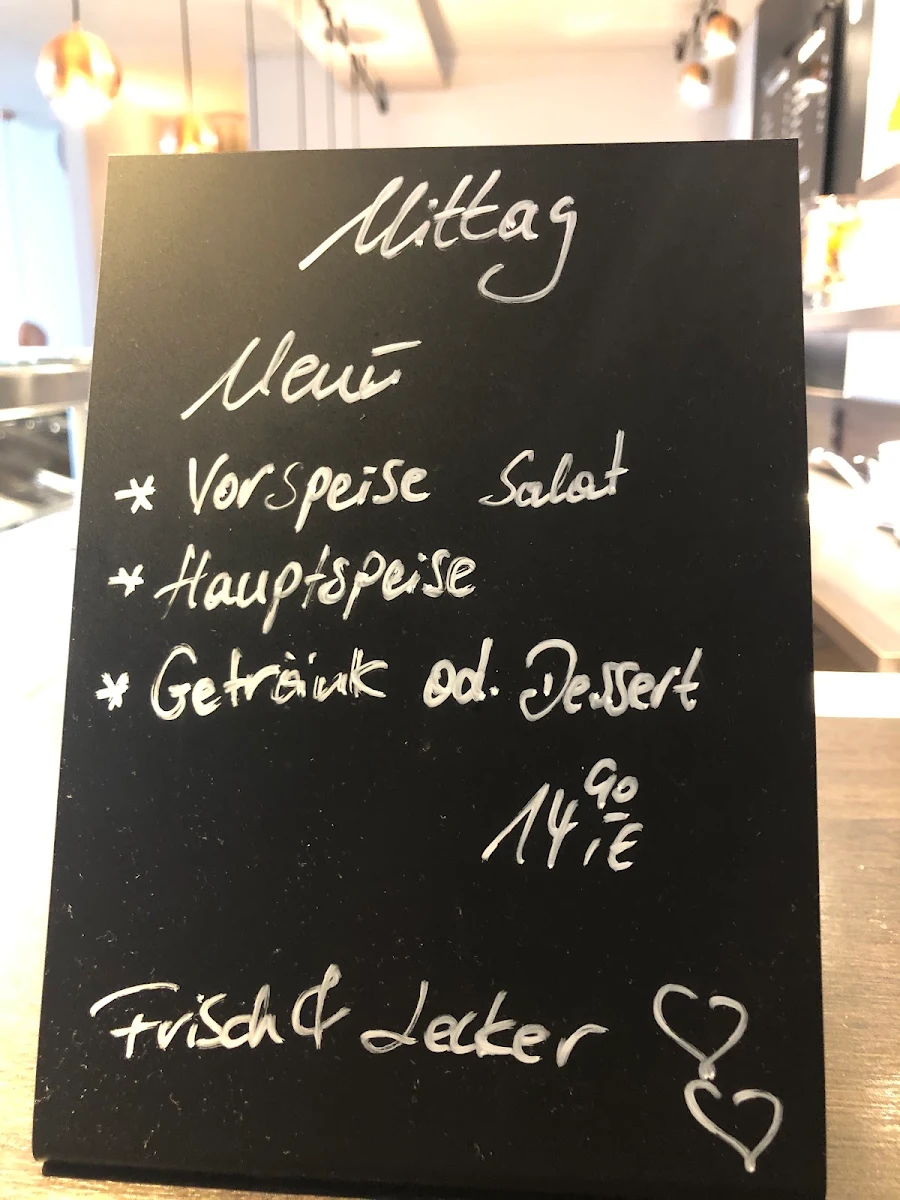 Mittag
Menü
* Vorspeise Salat
* Hauptspeise
* Getränk od. Dessert
14,90 €
Frisch & Lecker